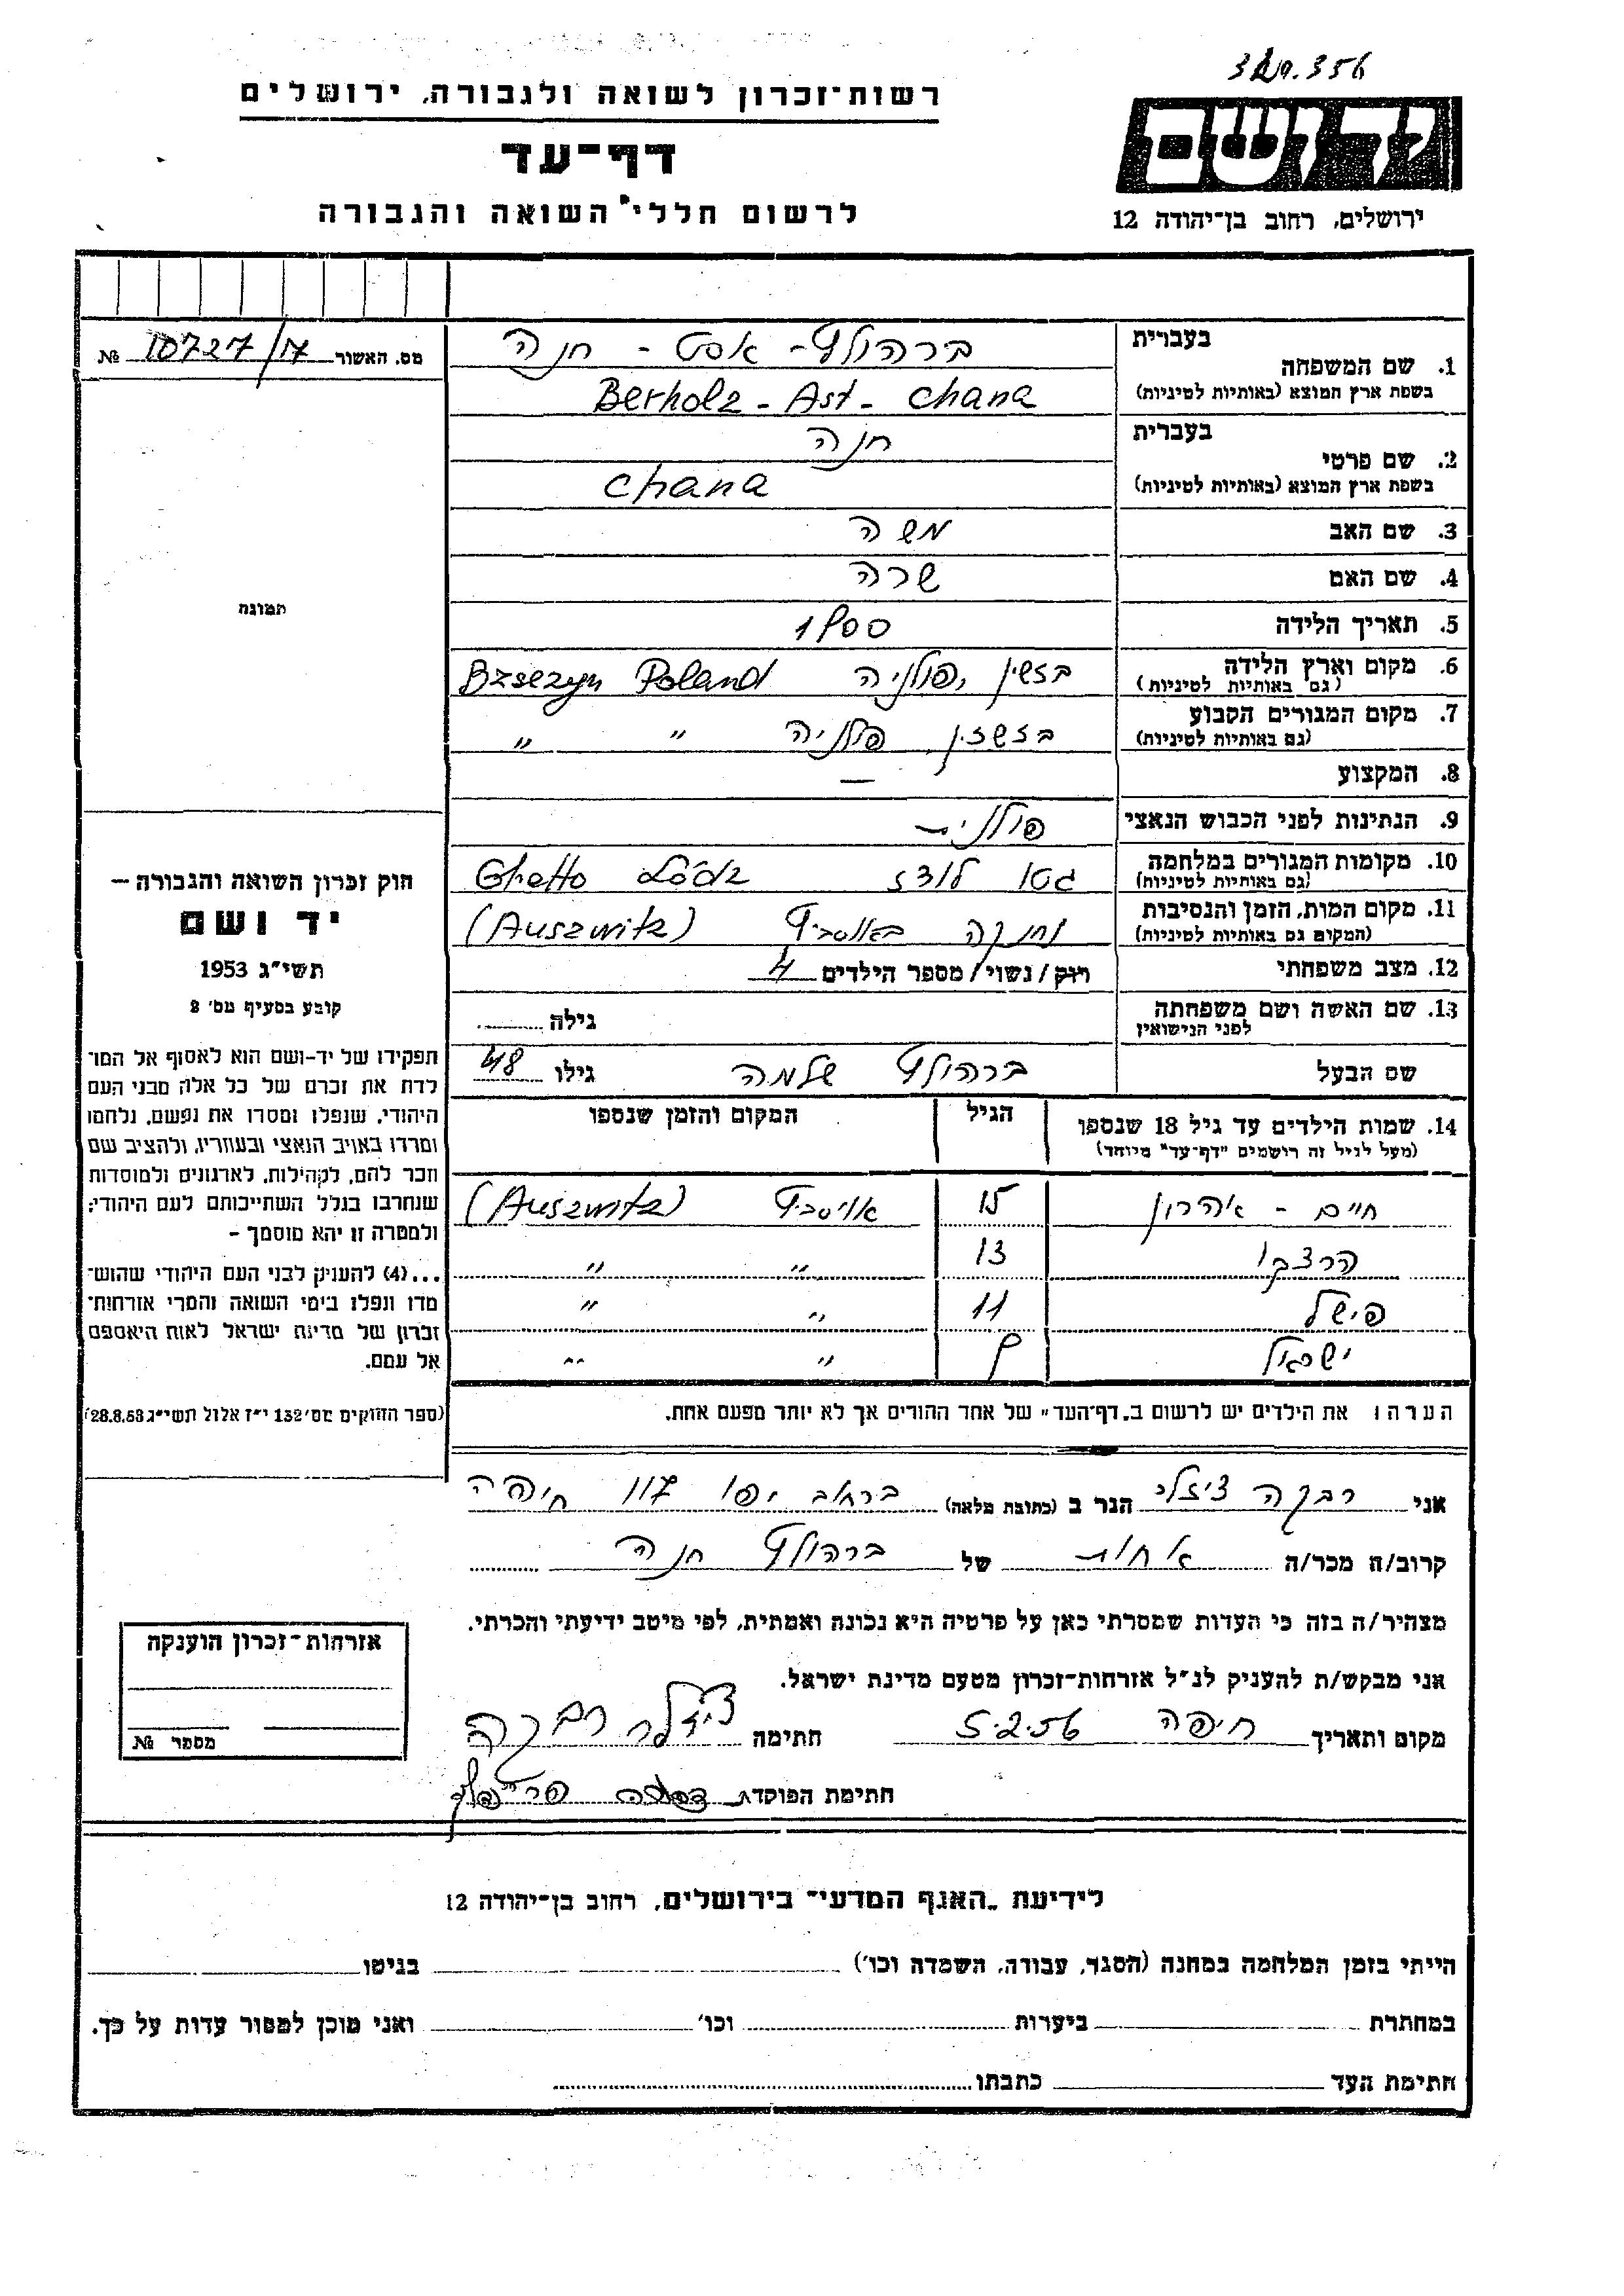 רשות־זכרון לשואה ולגבורה, ירושלים
דף־עד
לרשום חללי השואה והגבורה
יד ושם
ירושלים, רחוב בן־יהודה 12
מס. האשור 10727/17 №
1. שם המשפחה בעברית ברהולץ - אסט - חנה
בשפת ארץ המוצא (באותיות לטיניות) Berholz - Ast - Chana
2. שם פרטי בעברית חנה
בשפת ארץ המוצא (באותיות לטיניות) Chana
3. שם האב משה
4. שם האם שרה
5. תאריך הלידה 1900
6. מקום וארץ הלידה (גם באותיות לטיניות) בזשין, פולניה Bzsezyn Poland
7. מקום המגורים הקבוע (גם באותיות לטיניות) בזשזין, פולניה " "
8. המקצוע —
9. הנתינות לפני הכבוש הנאצי פולנית
10. מקומות המגורים במלחמה (גם באותיות לטיניות) גטו לודז Ghetto Łódz
11. מקום המות, הזמן והנסיבות (המקום גם באותיות לטיניות) נחנקה באוסביץ (Auszwitz)
12. מצב משפחתי רווק/נשוי/מספר הילדים 4
13. שם האשה ושם משפחתה לפני הנישואין גילה
שם הבעל ברהולץ שלמה גילו 48
14. שמות הילדים עד גיל 18 שנספו הגיל המקום והזמן שנספו
(מעל לגיל זה רושמים "דף־עד" מיוחד)
חיים - אהרון 15 אויסביץ (Auszwitz)
13 " "
פישל 11 " "
ישראל 9 " "
הערה: את הילדים יש לרשום ב„דף־העד" של אחד ההורים אך לא יותר מפעם אחת.
תמונה
חוק זכרון השואה והגבורה —
יד ושם
תשי"ג 1953
קובע בסעיף מס' 2
תפקידו של יד-ושם הוא לאסוף אל המו־
לדת את זכרם של כל אלה מבני העם
היהודי, שנפלו ומסרו את נפשם, נלחמו
ומרדו באויב הנאצי ובעוזריו, ולהציב שם
וזכר להם, לקהילות, לארגונים ולמוסדות
שנחרבו בגלל השתייכותם לעם היהודי;
ולמטרה זו יהא מוסמך —
...(4) להעניק לבני העם היהודי שהוש־
מדו ונפלו בימי השואה והמרי אזרחות־
זכרון של מדינת ישראל לאות היאספם
אל עמם.
(ספר החוקים מס' 132 י"ז אלול תשי"ג 28.8.53)
אני רבקה הגר ב (כתובת מלאה) ברחוב יפו חיפה
קרוב/ה מכר/ה אחות של ברהולץ חנה
מצהיר/ה בזה כי העדות שמסרתי כאן על פרטיה היא נכונה ואמתית, לפי מיטב ידיעתי והכרתי.
אני מבקש/ת להעניק לנ"ל אזרחות־זכרון מטעם מדינת ישראל.
מקום ותאריך חיפה 5.2.56 חתימה רבקה
חתימת הפוקדת
אזרחות־זכרון הוענקה
מספר №
לידיעת „האגף המדעי" בירושלים, רחוב בן־יהודה 12
הייתי בזמן המלחמה במחנה (הסגר, עבודה, השמדה וכו') בגיטו
במחתרת ביערות וכו' ואני מוכן למסור עדות על כך.
חתימת העד כתבתו